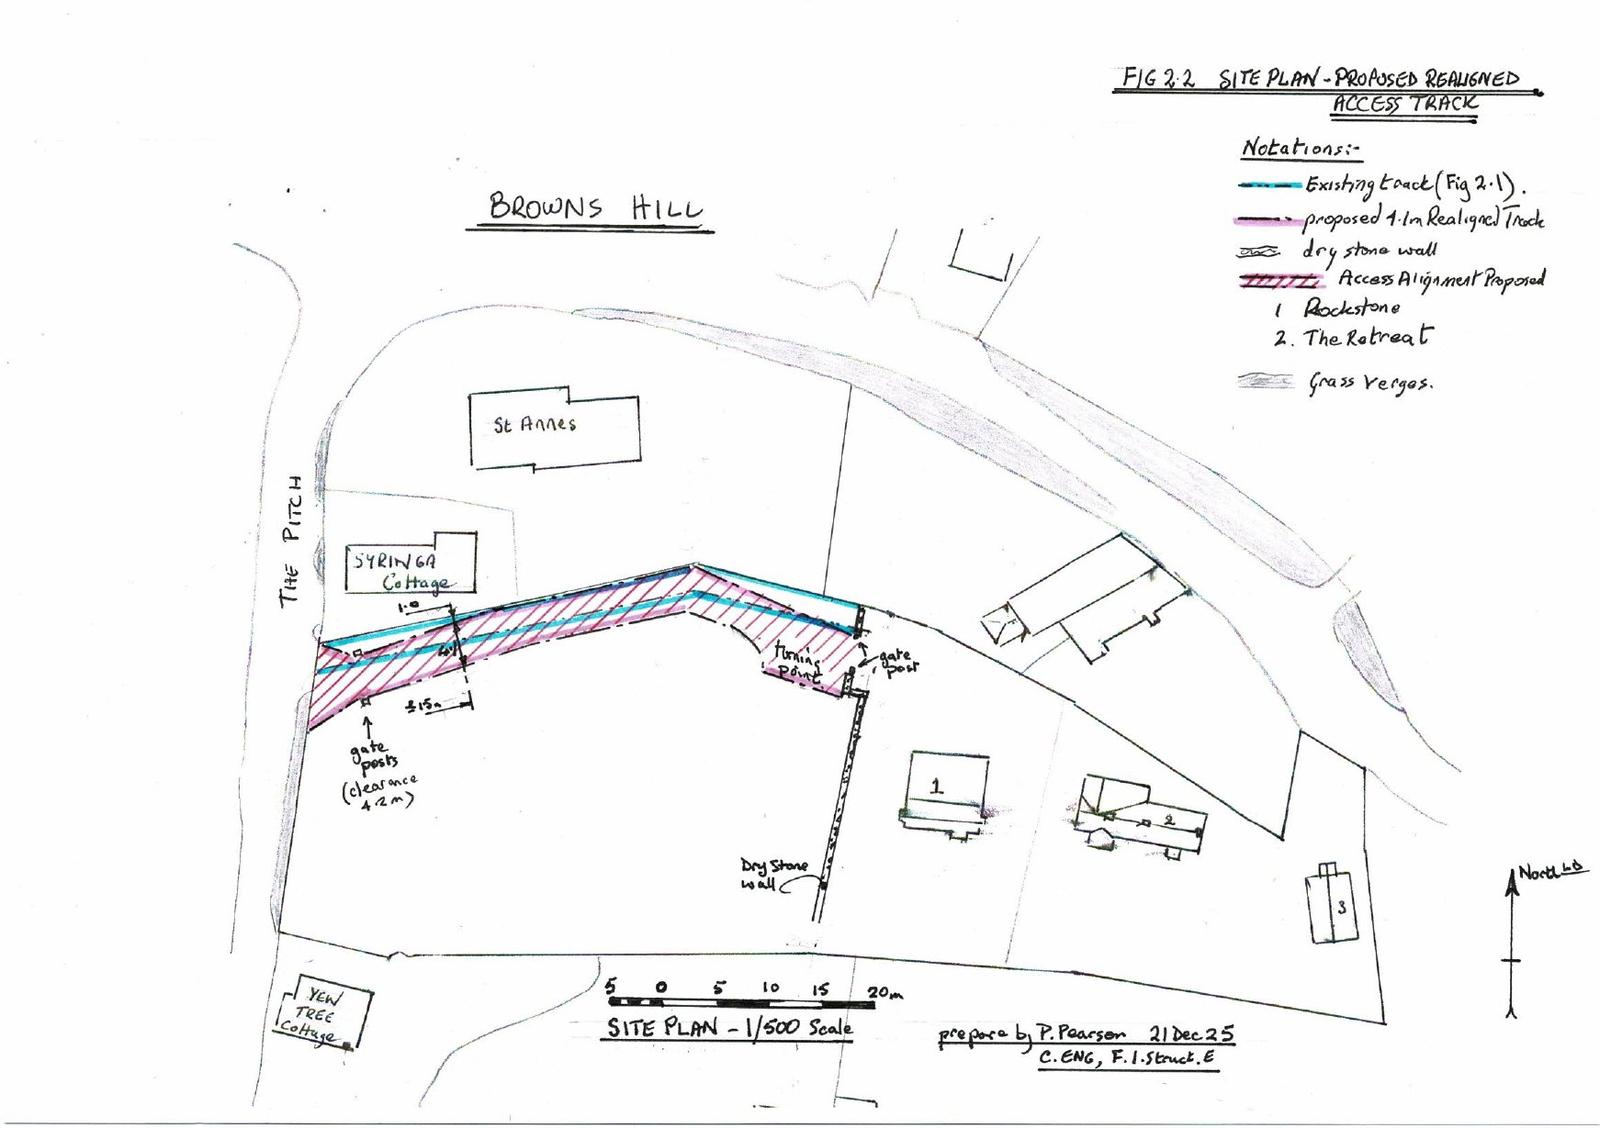 FIG 2.2 SITE PLAN - PROPOSED REALIGNED
ACCESS TRACK
Notations:-
Existing track (Fig 2.1).
proposed 4.1m Realigned Track
dry stone wall
Access Alignment Proposed
1 Rockstone
2. The Retreat
Grass Verges.
BROWNS HILL
St Annes
THE PITCH
SYRINGA
Cottage
1.0
turning
point
gate
post
±15m
gate
posts
(clearance
4.2m)
1
2
3
Dry Stone
wall
North
YEW
TREE
Cottage
5 0 5 10 15 20m
SITE PLAN - 1/500 Scale
prepare by P. Pearson 21 Dec 25
C.ENG, F.I.Struct.E